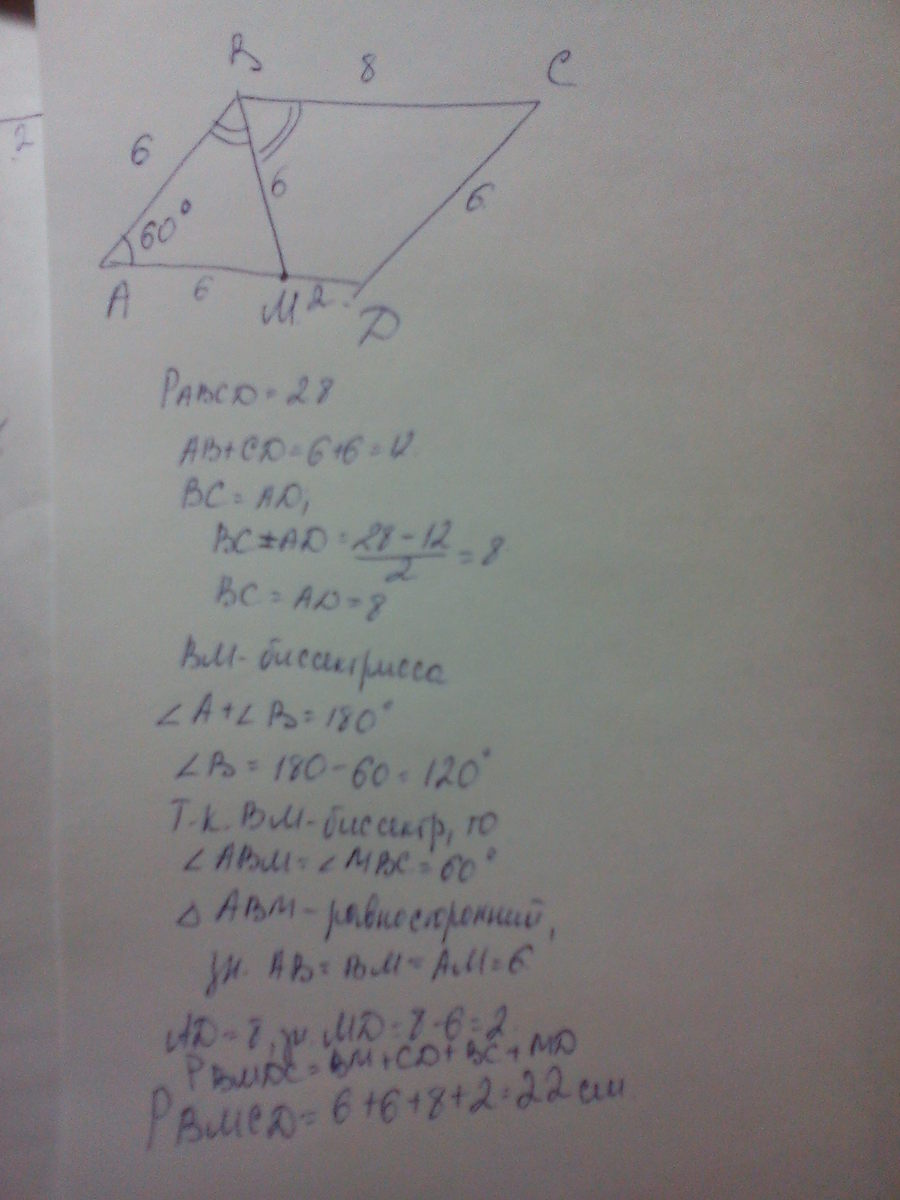 2
B
8
C
6
6
6
60°
A
6
M
2
D
P ABCD = 28
AB+CD=6+6=12
BC = AD,
BC=AD = 28-12/2 = 8
BC = AD = 8
BM- биссектрисса
∠A+∠B=180°
∠B = 180-60=120°
Т.к. BM-биссектр, то
∠ABM=∠MBC=60°
△ ABM-равносторонний,
зн. AB=BM=AM=6
AD=8, зн. MD=8-6=2
P BMDC=BM+CD+BC+MD
P BMCD=6+6+8+2=22 см